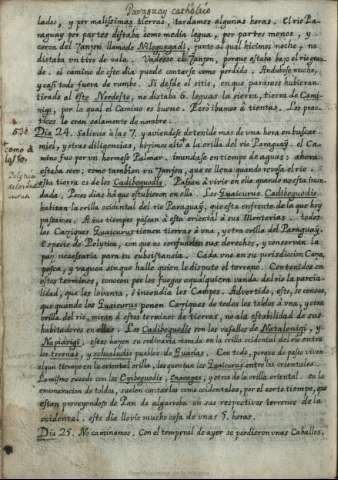 Paraguay catholico
lados, y por malissimas tierras, tardamos algunas horas. El rio Pa
raguay por partes distaba como media legua, por partes menos, y
cerca del Zanjon llamado junto al qual hicimos noche, no
distaba un tiro de vala. Vadease el Zanjon, porque estaba bajo el rio gran
de. el camino de este dia puede contarse como perdido. Anduvose mucho,
y casi todo fuera de rumbo. Si desde el sitio, en que paramos hubieran
tirado a el Nordeste, no distaba 6. leguas la sierra, tierra de Cami
nigi, por la qual el Camino es bueno. Pero ibamos à tientas. Los prac
ticos lo eran solamente de nombre.
Dia 24. Salimos a las 7. y aviendose detenido mas de una hora en buscar
miel, y otras diligencias, hizimos alto a la orilla del rio Paraguaÿ. el Ca
mino fue por un hermoso Palmar. inundase en tiempo de aguas: ahora
estaba seco; como tambien un Zanjon, que se llena quando revosa el rio.
esta tierra es de los Cadiboquodis. Passan à vivir en ella quando no esta inun
dada. Pocos dias há que estubieron en ella. Los Guaicurus Cadiboquodis
habitan la orilla ocidental del rio Paraguaÿ, que esta enfrente de la que hoy
passamos. A sus tiempos pasan a esta oriental à sus Monterias. todos
los Caziques Guaicurus tienen tierras à una, y otra orilla del Paraguaÿ.
especie de Policia, con que no confunden sus derechos, y conservan la
paz necessaria para su subsistencia. Cada uno en su jurisdiccion Caza,
pesca, y vaquea sin que halle quien le dispute el terreno. Contenidos en
estos terminos, conocen por los fuegos aqualquiera vanda del rio la parcia
lidad, que los levanta, è incendia los Campos. Adviertase, esto, se conoce,
que quando los Guaicurus ponen Caziques de todos los toldos à una, y otra
orilla del rio, miran à estos terminos de tierras, no ala estabilidad de sus
habitadores en ellos. Los Cadiboquodis son los vasallos de Natalonigi, y
Napidrigi. estos hazen su ordinaria morada en la orilla ocidental del rio entre
los terenas, y pueblos de Guanás. Con todo, porque de passo viven
algun tiempo en la oriental orilla, los quentan los entre los orientales.
Lo mismo sucede con los y otros de la orilla oriental. en la
enumeracion de toldos, suelen contarlos como ocidentales, por el corto tiempo, que
estan, proveyendose de Pan de algarroba en sus respectivos terrenos de la
ocidental. este dia llovio mucho cosa de unas 5. horas.
Dia 25. No caminamos. Con el temporal de ayer se perdieron unos Caballos.